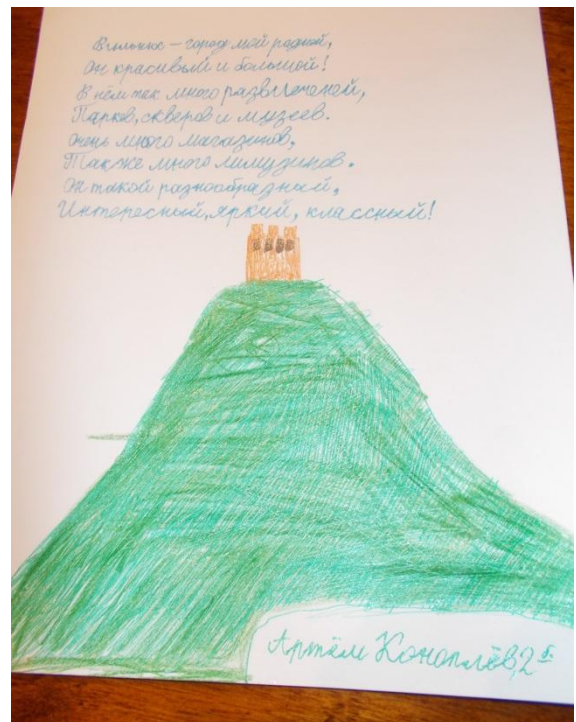 Вильнюс – город мой родной,
Он красивый и большой!
В нём так много развлечений,
Парков, скверов и музеев.
Очень много магазинов,
Также много лимузинов.
Он такой разнообразный,
Интересный, яркий, классный!
Артём Коноплёв, 2 Б